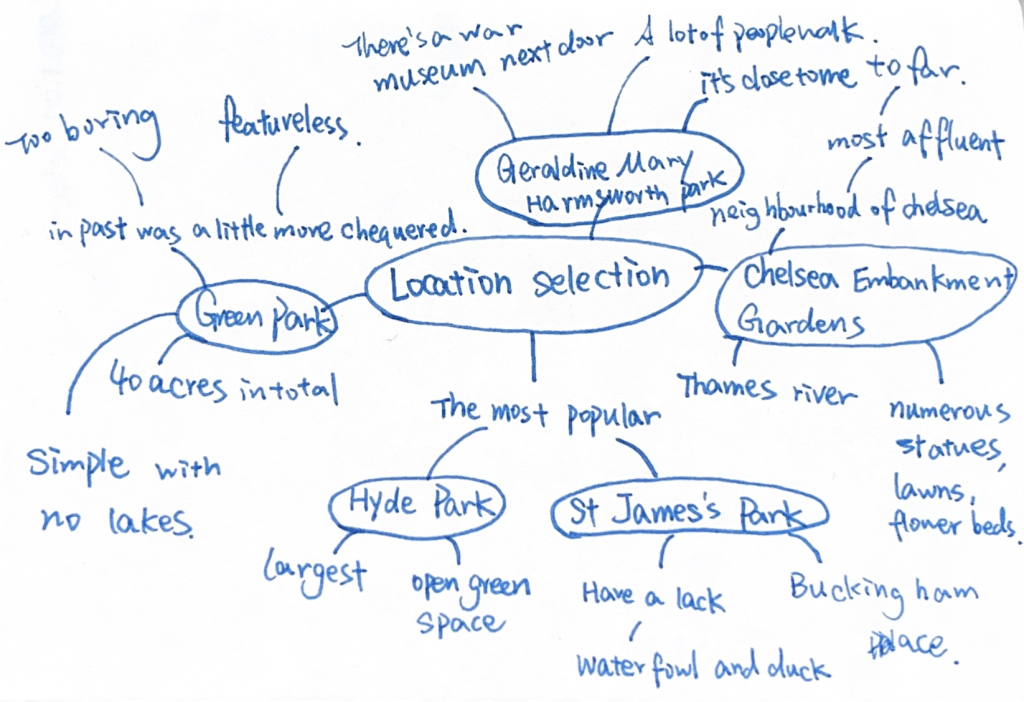 There's a war
museum next door
A lot of people walk.
it's close to me
to far.
too boring
featureless.
most affluent
Geraldine Mary
Harmsworth park
neighbourhood of chelsea
in past was a little more chequered.
Location selection
Chelsea Embankment
Gardens
Green Park
40 acres in total
The most popular
Thames river
numerous
statues,
lawns,
flower beds.
Simple with
no lakes.
Hyde Park
St James's Park
Largest
open green
space
Have a lack
Buckingham
place.
water fowl and duck